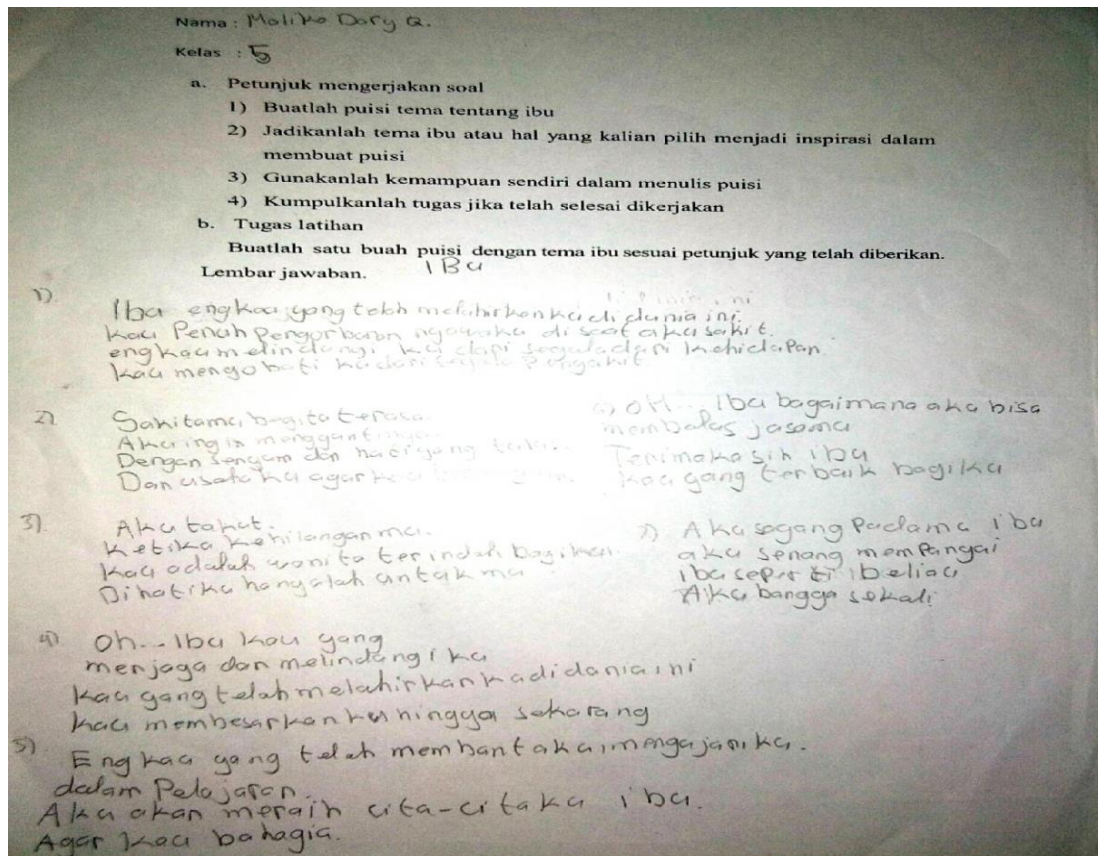 Nama : Maliko Dary Q.
Kelas : 5
a. Petunjuk mengerjakan soal
1) Buatlah puisi tema tentang ibu
2) Jadikanlah tema ibu atau hal yang kalian pilih menjadi inspirasi dalam
membuat puisi
3) Gunakanlah kemampuan sendiri dalam menulis puisi
4) Kumpulkanlah tugas jika telah selesai dikerjakan
b. Tugas latihan
Buatlah satu buah puisi dengan tema ibu sesuai petunjuk yang telah diberikan.
Lembar jawaban.
IBU
1) Ibu engkau yang telah melahirkanku di dunia ini.
Kau Penuh Pengorbanan nyawaku di saat aku sakit.
engkau melindungi ku dari segala dari kehidupan.
kau mengobati ku dari penyakit
2) Sakitamu begitu terasa
Aku ingin menggantinya
Dengan senyum dan hati yang tulus.
Dan usahaku agar
3) Aku takut.
Ketika kehilanganmu.
Kau adalah wanita terindah bagiku.
Dihatiku hanyalah untukmu
4) Oh... Ibu kau yang
menjaga dan melindungiku
Kau yang telah melahirkanku didunia ini
kau membesarkanku hingga sekarang
5) Engkau yang telah membantuku, mengajariku.
dalam Pelajaran.
Aku akan meraih cita-citaku ibu.
Agar kau bahagia.
6) OH... Ibu bagaimana aku bisa
membalas jasamu
Terimakasih ibu
kau yang terbaik bagiku
7) Aku sayang Padamu ibu
aku senang mempunyai
ibu seperti beliau
Aku bangga sekali